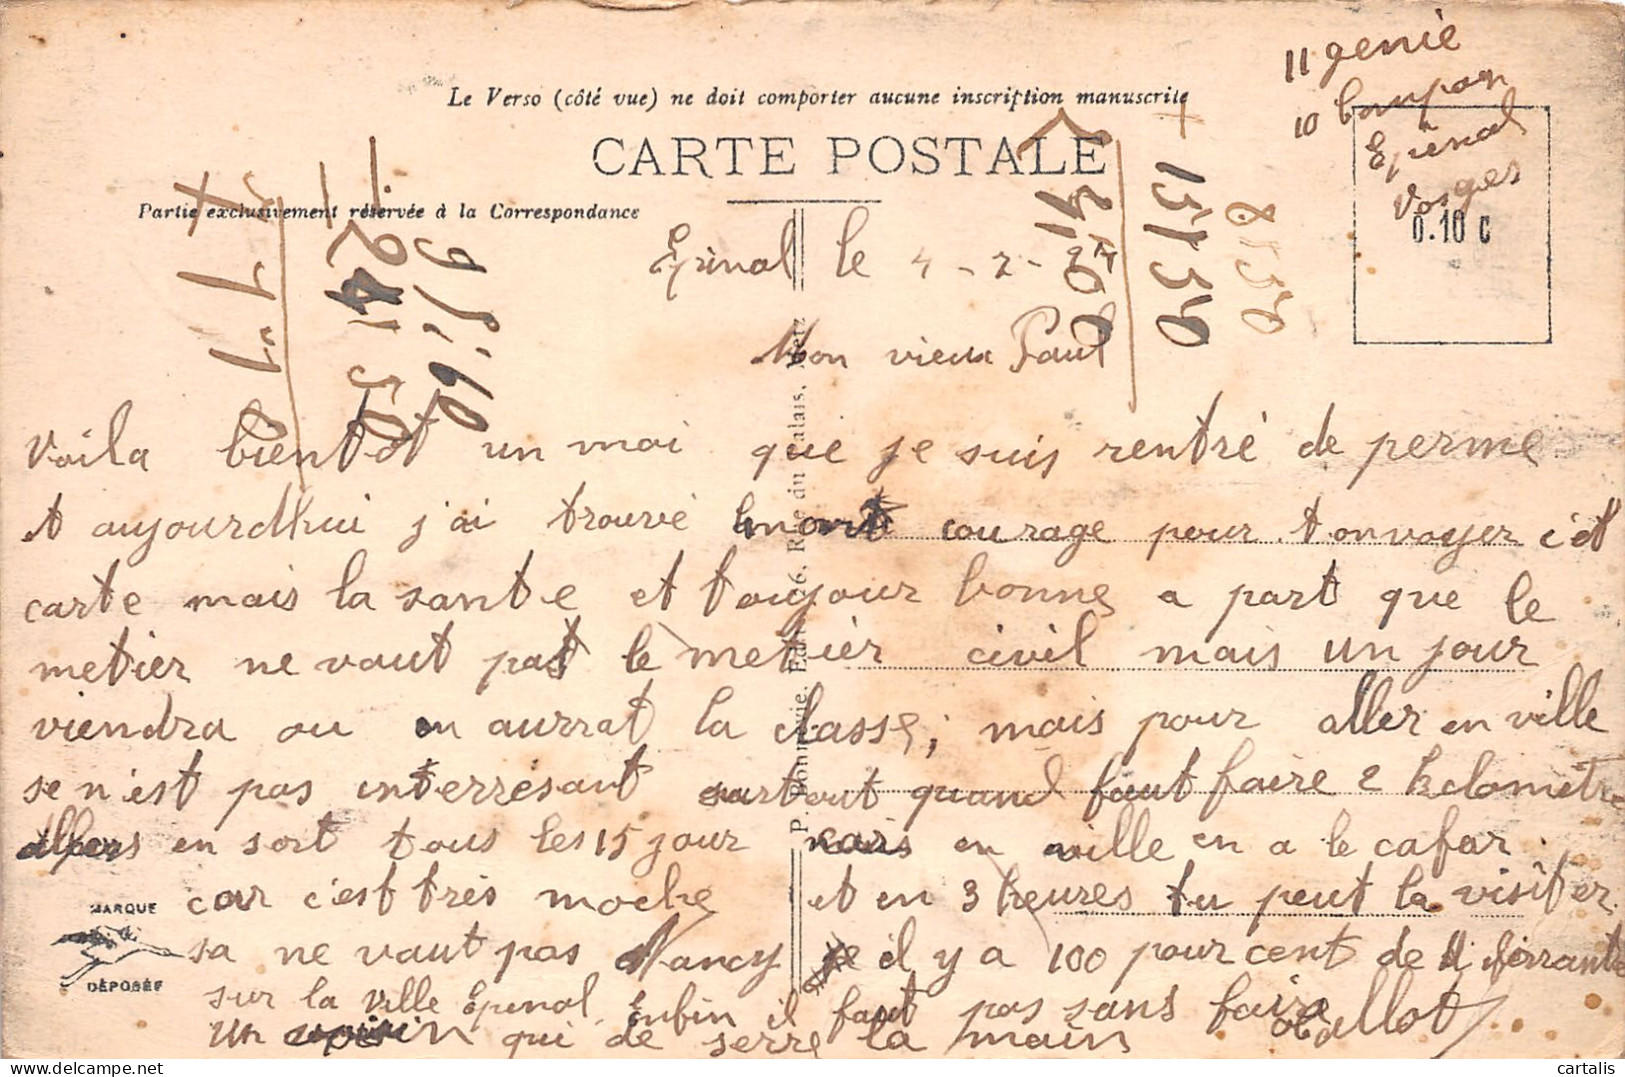 11 genie
10 Compagn
Epinal
Vosges
Le Verso (côté vue) ne doit comporter aucune inscription manuscrite
CARTE POSTALE
Partie exclusivement réservée à la Correspondance
0.10 c
Epinal le 4-2-
Mon vieux Paul
Voila bientot un moi que je suis rentré de perme
et aujourdhui j'ai trouvé courage pour tonvoyer cet
carte mais la sante et toujour bonne a part que le
metier ne vaut pas le metier civil mais un jour
viendra ou on aurrat la classe; mais pour aller en ville
se n'est pas interresant surtout quand faut faire 2 kelometre
en sort tous les 15 jour mais en ville en a le cafar
car c'est très moche et en 3 heures tu peut la visiter
sa ne vaut pas Nancy il y a 100 pour cent de diferrante
sur la ville Epinal. Enfin il faut pas sans faire
un copain qui de serre la main
Callot
P. Bonnevie, Edit. 6, Rue du Palais, Metz
MARQUE
DÉPOSÉE
151 50
© cartalis